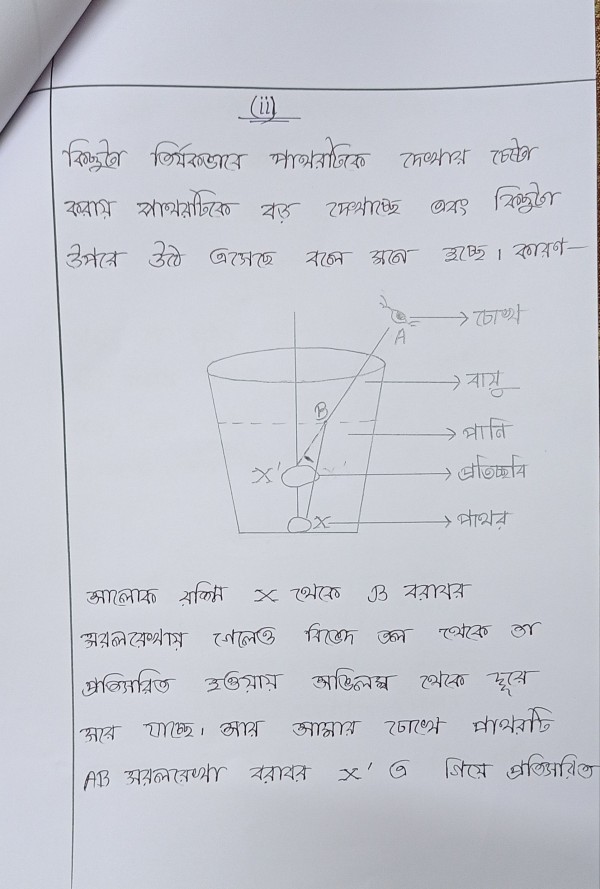 (ii)
কিছুটা তির্যকভাবে পাথরটিকে দেখার চেষ্টা
করায় পাথরটিকে বড় দেখাচ্ছে এবং কিছুটা
উপরে উঠে এসেছে বলে মনে হচ্ছে। কারণ—
A
চোখ
বায়ু
B
পানি
X′
প্রতিচ্ছবি
X
পাথর
আলোক রশ্মি X থেকে B বরাবর
সরলরেখায় গেলেও বিভেদ তল থেকে তা
প্রতিসরিত হওয়ায় অভিলম্ব থেকে দূরে
সরে যাচ্ছে। আর আমার চোখে পাথরটি
AB সরলরেখা বরাবর X′ এ গিয়ে প্রতিসরিত